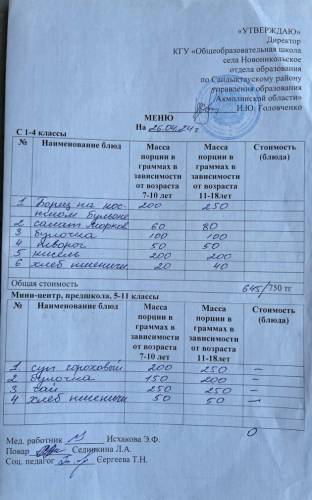 «УТВЕРЖДАЮ»
Директор
КГУ «Общеобразовательная школа
села Новоникольское
отдела образования
по Сандыктаускому району
управления образования
Акмолинской области»
И.Ю. Головченко
МЕНЮ
На 26.04.24 г
С 1-4 классы
№ Наименование блюд Масса порции в граммах в зависимости от возраста 7-10 лет Масса порции в граммах в зависимости от возраста 11-18лет Стоимость (блюда)
1 Борщ на кос- 200 250
тном бульоне
2 салат морков 60 80
3 Булочка 100 100
4 творог 50 50
5 кисель 200 200
6 хлеб пшеничн 20 40
Общая стоимость 645/750 тг
Мини-центр, предшкола, 5-11 классы
№ Наименование блюд Масса порции в граммах в зависимости от возраста 7-10 лет Масса порции в граммах в зависимости от возраста 11-18лет Стоимость (блюда)
1 суп гороховый 200 250 –
2 булочка 150 200 –
3 чай 250 250 –
4 хлеб пшеничн 50 50 –
0
Мед. работник Исхакова Э.Ф.
Повар Сединкина Л.А.
Соц. педагог Сергеева Т.Н.